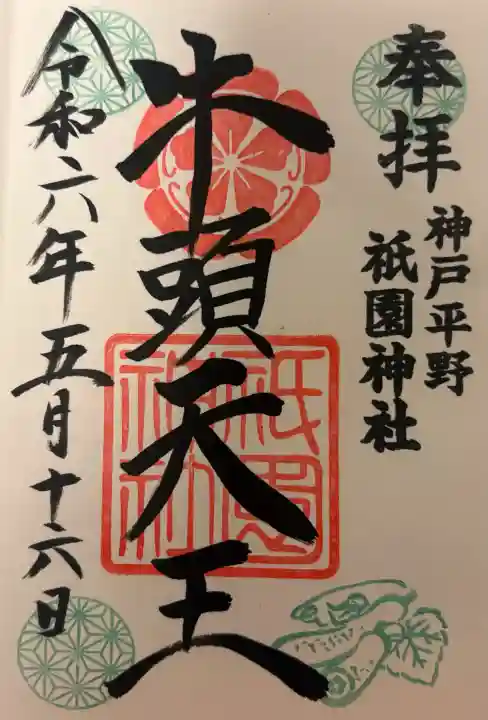 奉拝
神戸平野
祇園神社
牛頭天王
祇園神社
令和六年五月十六日